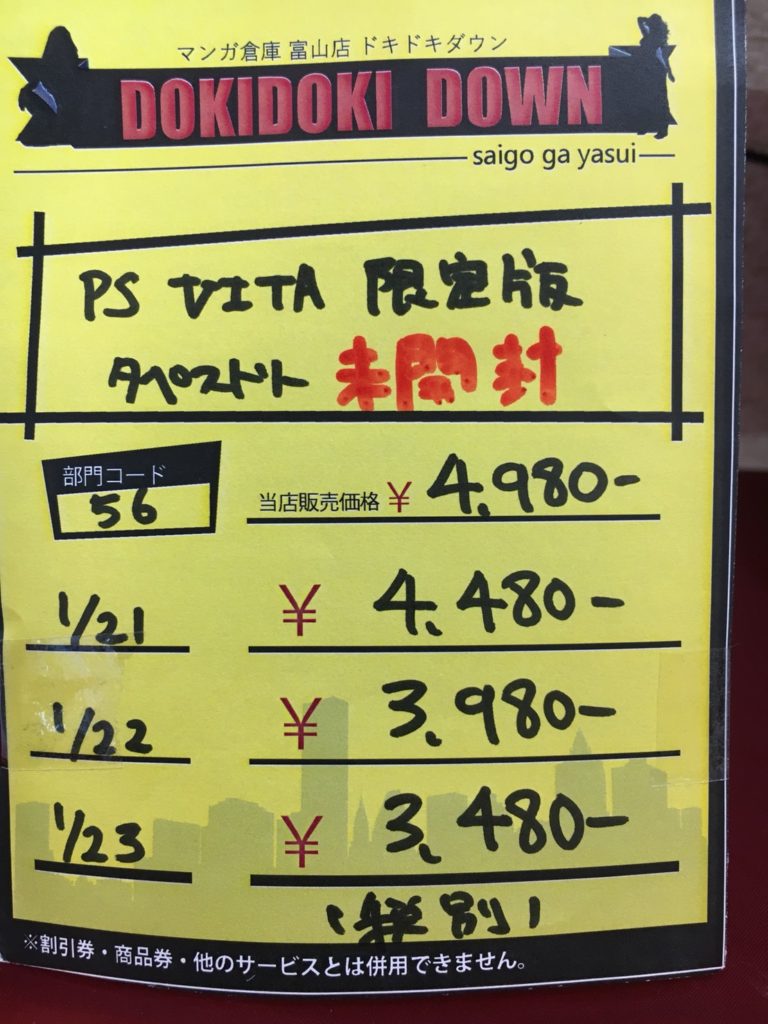 マンガ倉庫 富山店 ドキドキダウン
DOKIDOKI DOWN
saigo ga yasui
PS VITA 限定版
タペストリー 未開封
部門コード
56
当店販売価格 ¥ 4,980-
1/21 ¥ 4,480-
1/22 ¥ 3,980-
1/23 ¥ 3,480-
(税別)
※割引券・商品券・他のサービスとは併用できません。